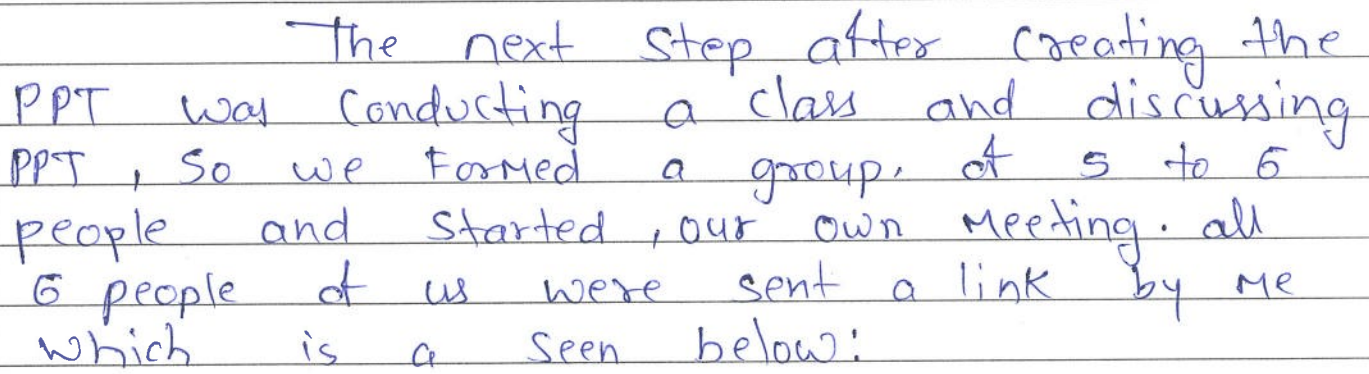 The next step after creating the
PPT was conducting a class and discussing
PPT, so we formed a group. of 5 to 6
people and started, our own meeting. all
6 people of us were sent a link by me
which is a seen below: